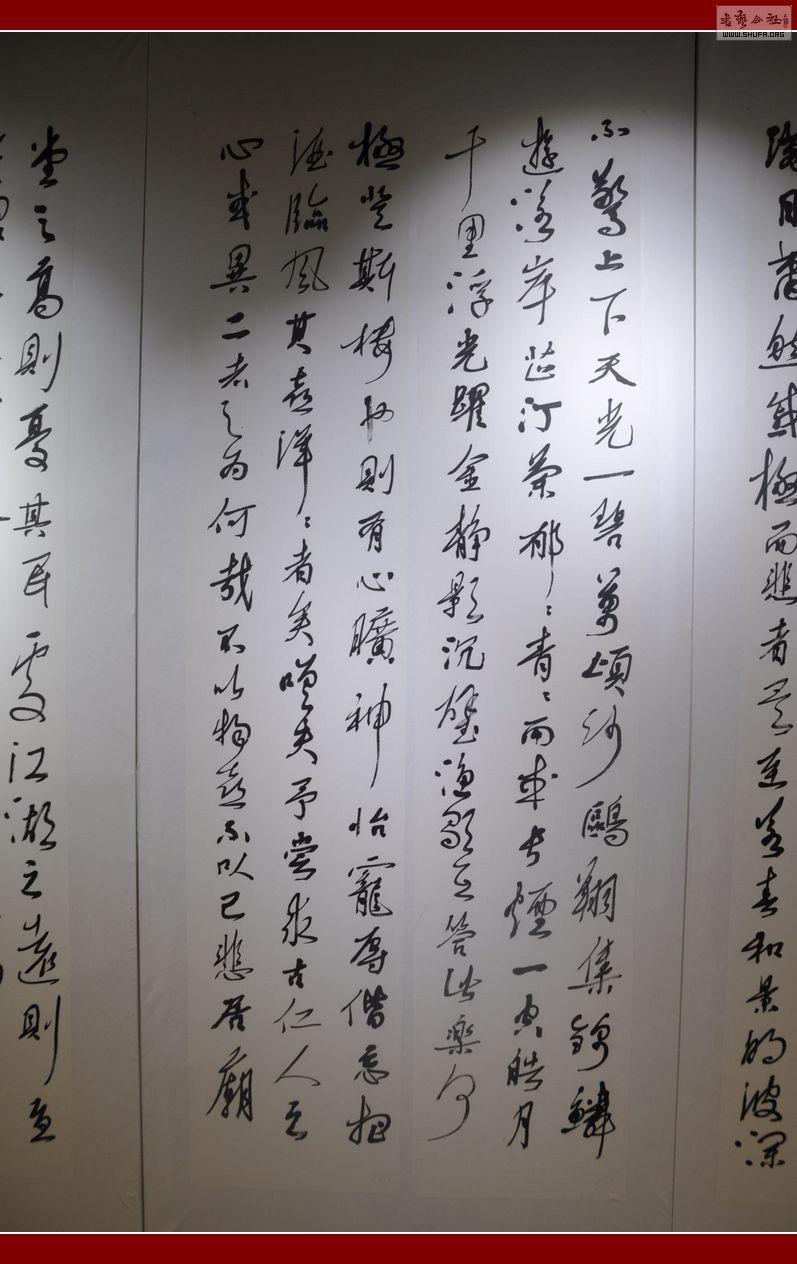 書藝公社
WWW.SHUFA.ORG
滿目蕭然感極而悲者矣至若春和景明波瀾
不驚上下天光一碧萬頃沙鷗翔集錦鱗
遊泳岸芷汀蘭郁〻青〻而或長煙一空皓月
千里浮光躍金靜影沉璧漁歌互答此樂何
極登斯樓也則有心曠神怡寵辱偕忘把
酒臨風其喜洋〻者矣嗟夫予嘗求古仁人之
心或異二者之為何哉不以物喜不以己悲居廟
堂之高則憂其民處江湖之遠則憂